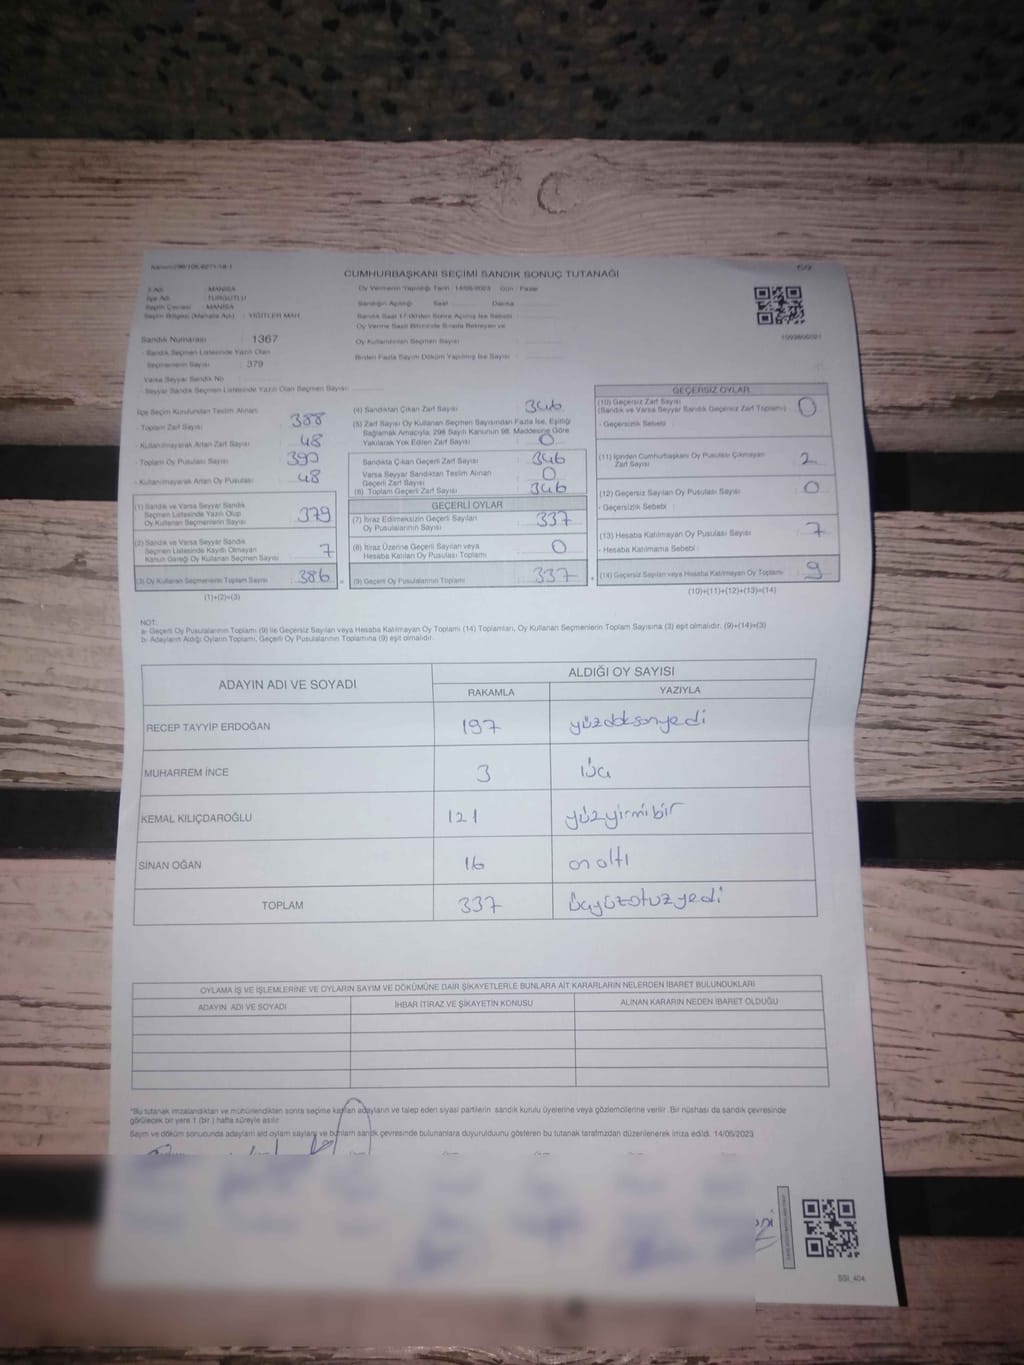 CUMHURBAŞKANI SEÇİMİ SANDIK SONUÇ TUTANAĞI
İl Adı : MANİSA
İlçe Adı : TURGUTLU
Seçim Çevresi : MANİSA
Seçim Bölgesi (Mahalle Adı) : YİĞİTLER MAH
Oy Vermenin Yapıldığı Tarih : 14/05/2023 Gün : Pazar
Sandığın Açıldığı Saat Dakika
Sandık Saat 17:00'den Sonra Açılmış İse Sebebi :
Oy Verme Saati Bitiminde Sırada Bekleyen ve
Oy Kullandırılan Seçmen Sayısı
Birden Fazla Sayım Döküm Yapılmış İse Sayısı
Sandık Numarası : 1367
- Sandık Seçmen Listesinde Yazılı Olan
Seçmenlerin Sayısı : 379
Varsa Seyyar Sandık No
Seyyar Sandık Seçmen Listesinde Yazılı Olan Seçmen Sayısı
İlçe Seçim Kurulundan Teslim Alınan
- Toplam Zarf Sayısı : 388
- Kullanılmayarak Artan Zarf Sayısı : 48
- Toplam Oy Pusulası Sayısı : 390
- Kullanılmayarak Artan Oy Pusulası : 48
(1) Sandık ve Varsa Seyyar Sandık
Seçmen Listesinde Yazılı Olup
Oy Kullanan Seçmenlerin Sayısı : 379
(2) Sandık ve Varsa Seyyar Sandık
Seçmen Listesinde Kayıtlı Olmayan
Kanun Gereği Oy Kullanan Seçmen Sayısı : 7
(3) Oy Kullanan Seçmenlerin Toplam Sayısı : 386
(1)+(2)=(3)
(4) Sandıktan Çıkan Zarf Sayısı : 346
(5) Zarf Sayısı Oy Kullanan Seçmen Sayısından Fazla İse, Eşitliği
Sağlamak Amacıyla; 298 Sayılı Kanunun 98. Maddesine Göre
Yakılarak Yok Edilen Zarf Sayısı : 0
Sandıkta Çıkan Geçerli Zarf Sayısı : 346
Varsa Seyyar Sandıktan Teslim Alınan
Geçerli Zarf Sayısı : 0
(6) Toplam Geçerli Zarf Sayısı : 346
GEÇERLİ OYLAR
(7) İtiraz Edilmeksizin Geçerli Sayılan
Oy Pusulalarının Sayısı : 337
(8) İtiraz Üzerine Geçerli Sayılan veya
Hesaba Katılan Oy Pusulası Toplamı : 0
(9) Geçerli Oy Pusulalarının Toplamı : 337
GEÇERSİZ OYLAR
(10) Geçersiz Zarf Sayısı
(Sandık ve Varsa Seyyar Sandık Geçersiz Zarf Toplamı) : 0
- Geçersizlik Sebebi :
(11) İçinden Cumhurbaşkanı Oy Pusulası Çıkmayan
Zarf Sayısı : 2
(12) Geçersiz Sayılan Oy Pusulası Sayısı : 0
- Geçersizlik Sebebi :
(13) Hesaba Katılmayan Oy Pusulası Sayısı : 7
- Hesaba Katılmama Sebebi :
(14) Geçersiz Sayılan veya Hesaba Katılmayan Oy Toplamı : 9
(10)+(11)+(12)+(13)=(14)
NOT:
a- Geçerli Oy Pusulalarının Toplamı (9) ile Geçersiz Sayılan veya Hesaba Katılmayan Oy Toplamı (14) Toplamları, Oy Kullanan Seçmenlerin Toplam Sayısına (3) eşit olmalıdır. (9)+(14)=(3)
b- Adayların Aldığı Oyların Toplamı, Geçerli Oy Pusulalarının Toplamına (9) eşit olmalıdır.
ADAYIN ADI VE SOYADI
ALDIĞI OY SAYISI
RAKAMLA YAZIYLA
RECEP TAYYİP ERDOĞAN 197 yüzdoksanyedi
MUHARREM İNCE 3 üç
KEMAL KILIÇDAROĞLU 121 yüzyirmibir
SİNAN OĞAN 16 on altı
TOPLAM 337 üçyüzotuzyedi
OYLAMA İŞ VE İŞLEMLERİNE VE OYLARIN SAYIM VE DÖKÜMÜNE DAİR ŞİKAYETLERLE BUNLARA AİT KARARLARIN NELERDEN İBARET BULUNDUKLARI
ADAYIN ADI VE SOYADI İHBAR İTİRAZ VE ŞİKAYETİN KONUSU ALINAN KARARIN NEDEN İBARET OLDUĞU
*Bu tutanak imzalandıktan ve mühürlendikten sonra seçime katılan adayların ve talep eden siyasi partilerin sandık kurulu üyelerine veya gözlemcilerine verilir. Bir nüshası da sandık çevresinde
görülecek bir yere 1 (bir) hafta süreyle asılır.
Sayım ve döküm sonucunda adayların aldı oyların sayıları ve bunların sandık çevresinde bulunanlara duyurulduğunu gösteren bu tutanak tarafımızdan düzenlenerek imza edildi. 14/05/2023
SSI_404